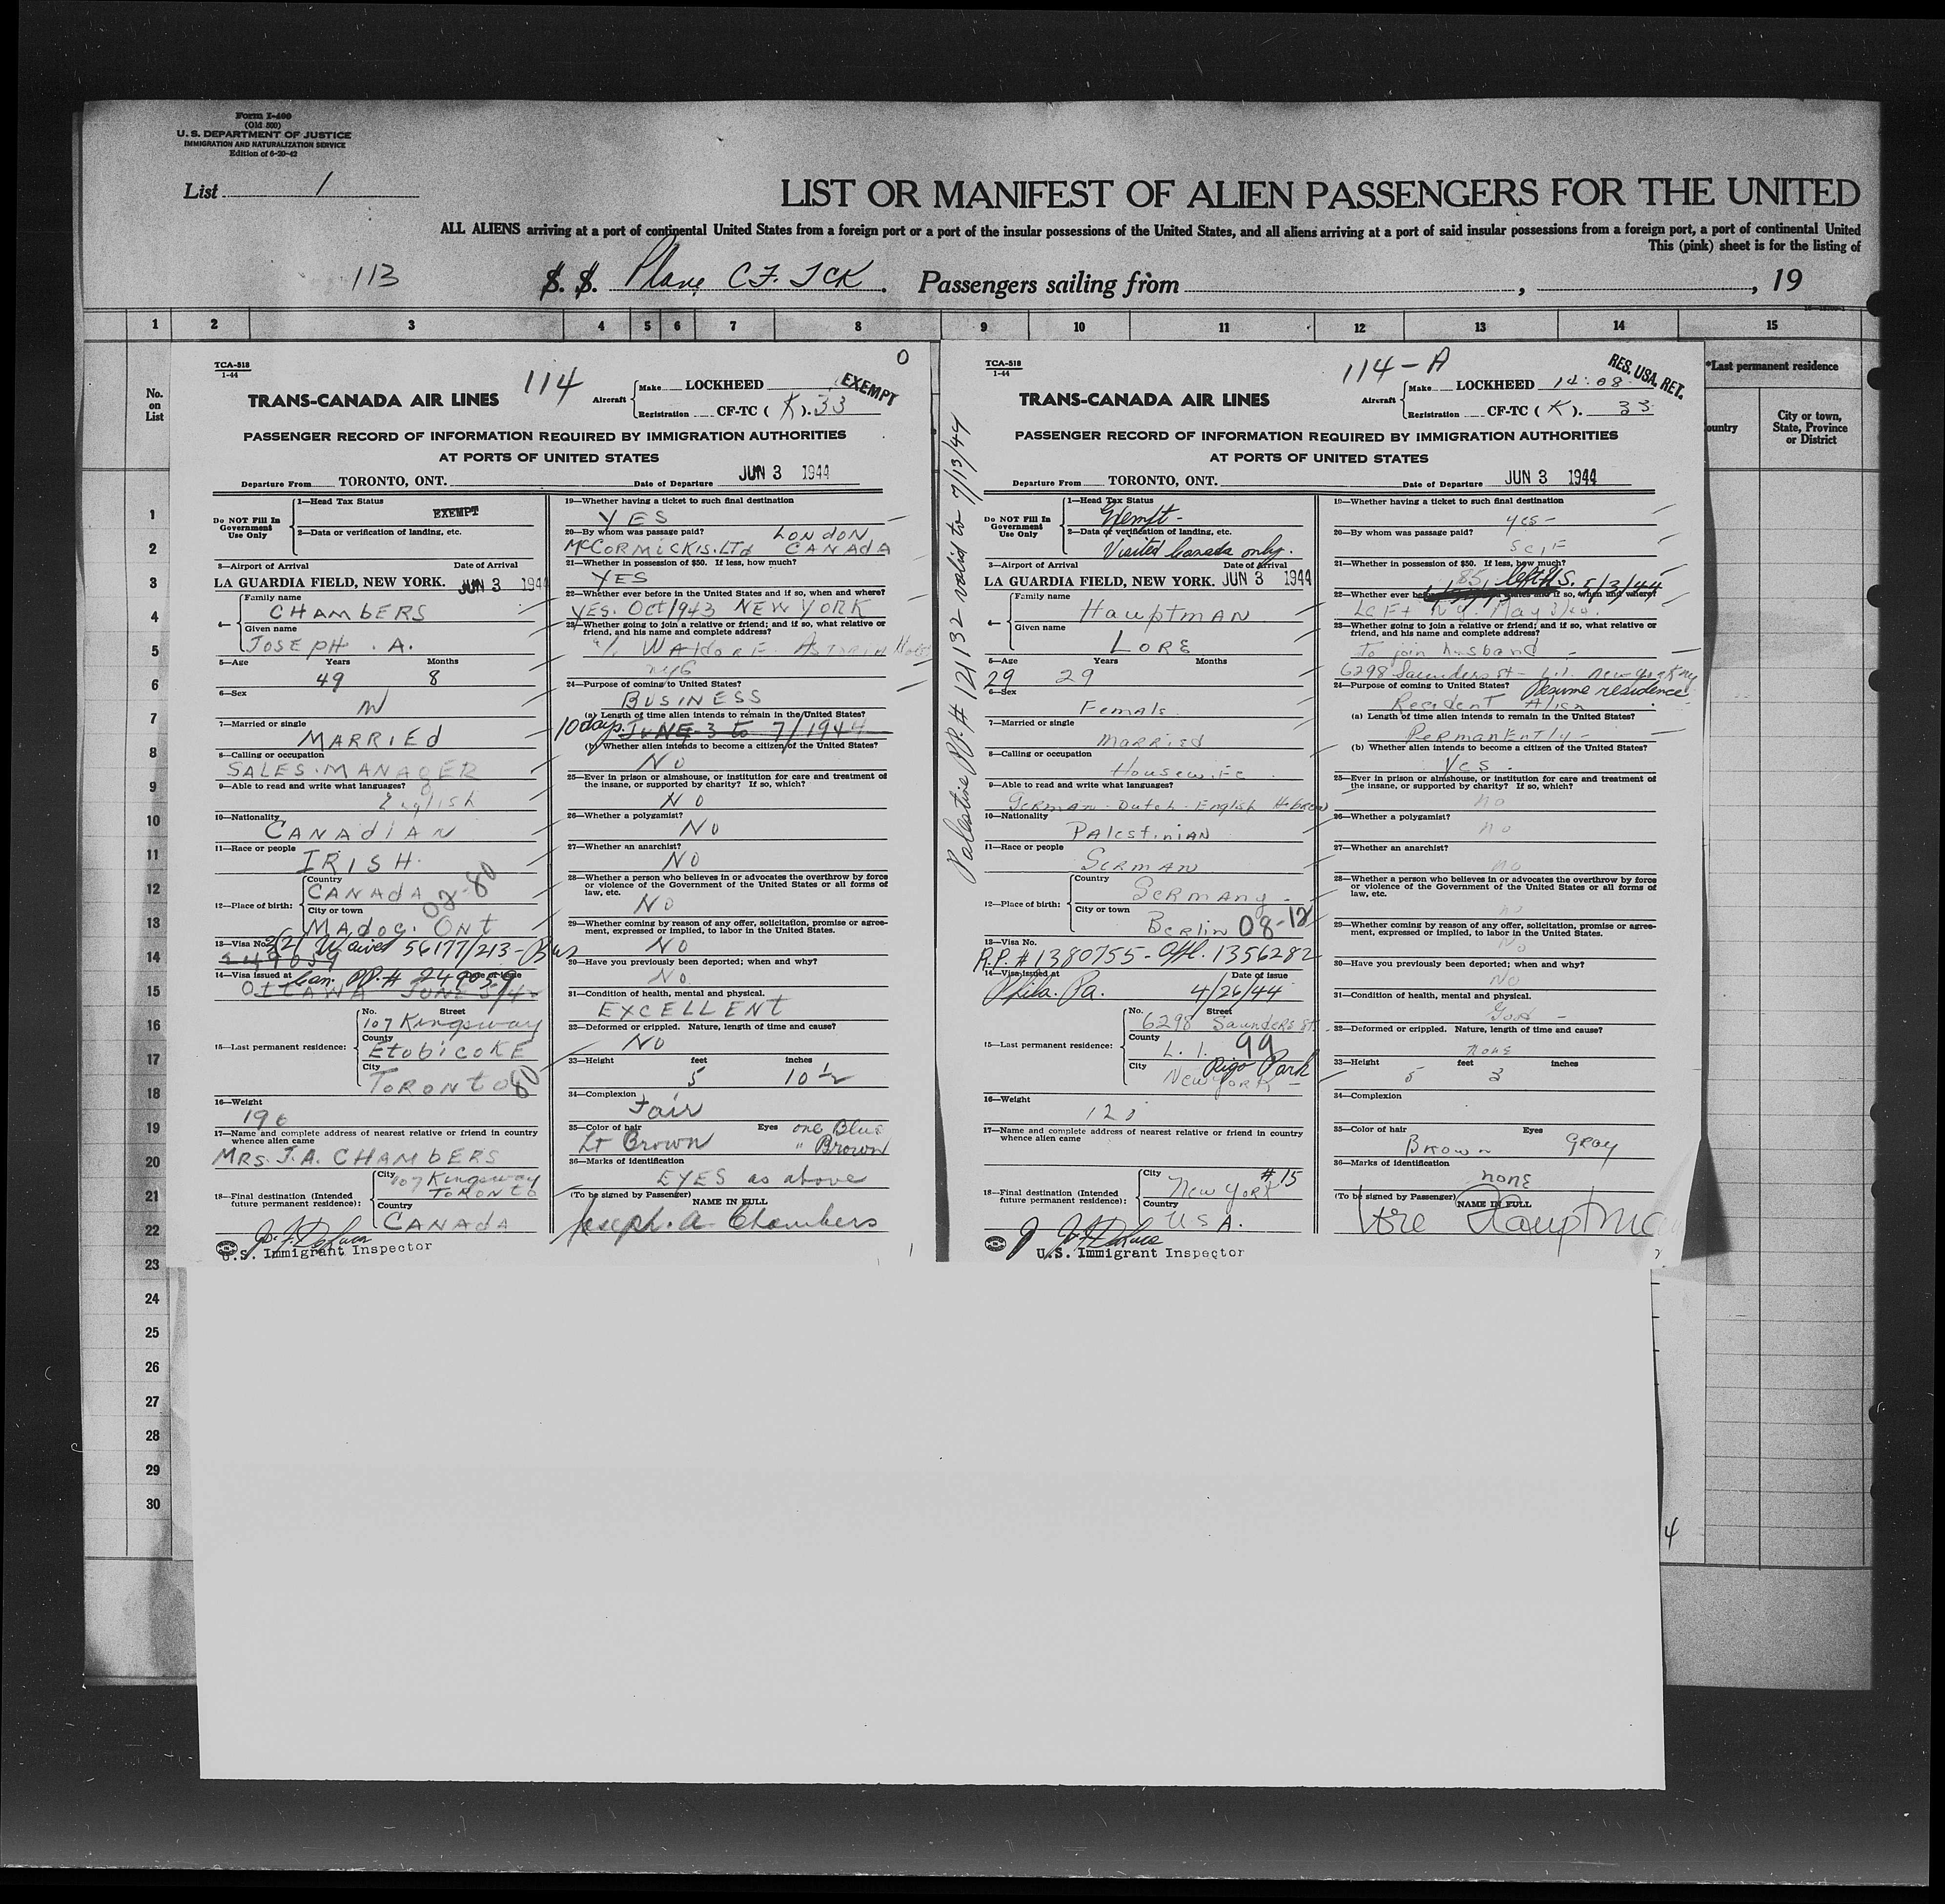 Form I-400
(Old 500)
U. S. DEPARTMENT OF JUSTICE
IMMIGRATION AND NATURALIZATION SERVICE
Edition of 6-20-42
List 1
LIST OR MANIFEST OF ALIEN PASSENGERS FOR THE UNITED
ALL ALIENS arriving at a port of continental United States from a foreign port or a port of the insular possessions of the United States, and all aliens arriving at a port of said insular possessions from a foreign port, a port of continental United
This (pink) sheet is for the listing of
113 S. S. Plane CF. TCK. Passengers sailing from , , 19
1 2 3 4 5 6 7 8 9 10 11 12 13 14 15
No. on List
*Last permanent residence
ountry
City or town, State, Province or District
1
2
3
4
5
6
7
8
9
10
11
12
13
14
15
16
17
18
19
20
21
22
23
24
25
26
27
28
29
30
TCA-518
1-44
114
0
EXEMPT
TRANS-CANADA AIR LINES
Aircraft Make LOCKHEED
Registration CF-TC ( K ). 33
PASSENGER RECORD OF INFORMATION REQUIRED BY IMMIGRATION AUTHORITIES
AT PORTS OF UNITED STATES
Departure From TORONTO, ONT. Date of Departure JUN 3 1944
Do NOT Fill In Government Use Only
1—Head Tax Status
EXEMPT
2—Data or verification of landing, etc.
3—Airport of Arrival Date of Arrival
LA GUARDIA FIELD, NEW YORK. JUN 3 1944
4— Family name
CHAMBERS
Given name
JOSEPH . A.
5—Age Years Months
49 8
6—Sex
M
7—Married or single
MARRIEd
8—Calling or occupation
SALES. MANAGER
9—Able to read and write what languages?
English
10—Nationality
CANAdIAN
11—Race or people
IRISH.
12—Place of birth: Country
CANADA
02-80
City or town
MAdoc. ONt
13—Visa No.
Waived 56177/213-Bus
249059
14—Visa issued at Date of Issue
Can. PP.# 249059
OTTAWA JUNE
15—Last permanent residence: No. Street
107 Kingsway
County
EtobicOKE
City
TORONtO 80
16—Weight
190
17—Name and complete address of nearest relative or friend in country whence alien came
MRS. J.A. CHAMBERS
18—Final destination (Intended future permanent residence): City
107 Kingsway
TORONTO
Country
CANADA
U.S. Immigrant Inspector
19—Whether having a ticket to such final destination
YES
20—By whom was passage paid? LONdON
McCORMICKS. LTd CANADA
21—Whether in possession of $50. If less, how much?
YES
22—Whether ever before in the United States and if so, when and where?
YES. Oct/1943 NEW YORK
23—Whether going to join a relative or friend; and if so, what relative or friend, and his name and complete address?
% WALdORF. ASTORIA Hotel
nyc
24—Purpose of coming to United States?
BUSINESS
(a) Length of time alien intends to remain in the United States?
10 days. JUNE 3 to 7/1944
(b) Whether alien intends to become a citizen of the United States?
NO
25—Ever in prison or almshouse, or institution for care and treatment of the insane, or supported by charity? If so, which?
NO
26—Whether a polygamist?
NO
27—Whether an anarchist?
NO
28—Whether a person who believes in or advocates the overthrow by force or violence of the Government of the United States or all forms of law, etc.
NO
29—Whether coming by reason of any offer, solicitation, promise or agreement, expressed or implied, to labor in the United States.
NO
30—Have you previously been deported; when and why?
NO
31—Condition of health, mental and physical.
EXCELLENT
32—Deformed or crippled. Nature, length of time and cause?
NO
33—Height feet inches
5 10 1/2
34—Complexion
Fair
35—Color of hair Eyes one Blue
Lt Brown " Brown
36—Marks of identification
EYES as above
(To be signed by Passenger) NAME IN FULL
Joseph. A. Chambers
Palestine PP.# 121132 valid to 7/13/44
TCA-518
1-44
114-A
RES. USA. RET.
TRANS-CANADA AIR LINES
Aircraft Make LOCKHEED 14:08
Registration CF-TC ( K ). 33
PASSENGER RECORD OF INFORMATION REQUIRED BY IMMIGRATION AUTHORITIES
AT PORTS OF UNITED STATES
Departure From TORONTO, ONT. Date of Departure JUN 3 1944
Do NOT Fill In Government Use Only
1—Head Tax Status
Exempt -
2—Data or verification of landing, etc.
Visited Canada only.
3—Airport of Arrival Date of Arrival
LA GUARDIA FIELD, NEW YORK. JUN 3 1944
4— Family name
Hauptman
Given name
LORE
5—Age Years Months
29 29
6—Sex
Female
7—Married or single
Married
8—Calling or occupation
Housewife
9—Able to read and write what languages?
German - Dutch - English Hebrew
10—Nationality
Palestinian
11—Race or people
German
12—Place of birth: Country
Germany
City or town
Berlin 08-12
13—Visa No.
R.P.# 1380755 - Off. 1356282
14—Visa issued at Date of issue
Phila. Pa. 4/26/44
15—Last permanent residence: No. Street
6298 Saunders St.
County
L. I. 99
City
Rego Park
New York
16—Weight
120
17—Name and complete address of nearest relative or friend in country whence alien came
18—Final destination (Intended future permanent residence): City
New York #15
Country
USA.
U.S. Immigrant Inspector
19—Whether having a ticket to such final destination
yes -
20—By whom was passage paid?
self
21—Whether in possession of $50. If less, how much?
85, left U.S. 5/3/44
22—Whether ever before in the United States and if so, when and where?
Left N.Y. May 3/44.
23—Whether going to join a relative or friend; and if so, what relative or friend, and his name and complete address?
To join husband
6298 Saunders St - L.I. New York NY
24—Purpose of coming to United States? Resume residence
Resident Alien
(a) Length of time alien intends to remain in the United States?
Permanently -
(b) Whether alien intends to become a citizen of the United States?
Yes.
25—Ever in prison or almshouse, or institution for care and treatment of the insane, or supported by charity? If so, which?
no
26—Whether a polygamist?
no
27—Whether an anarchist?
no
28—Whether a person who believes in or advocates the overthrow by force or violence of the Government of the United States or all forms of law, etc.
no
29—Whether coming by reason of any offer, solicitation, promise or agreement, expressed or implied, to labor in the United States.
No
30—Have you previously been deported; when and why?
No
31—Condition of health, mental and physical.
Good -
32—Deformed or crippled. Nature, length of time and cause?
none
33—Height feet inches
5 3
34—Complexion
35—Color of hair Eyes
Brown Gray
36—Marks of identification
none
(To be signed by Passenger) NAME IN FULL
Lore Hauptma
4